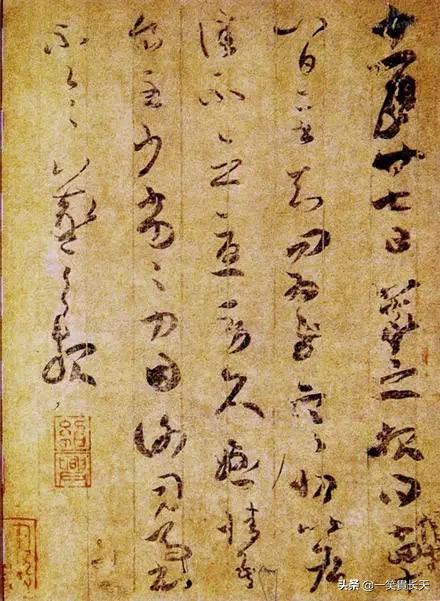 十一月廿七日羲之報得十四
十八日二書知問為慰寒切比各
佳不念憂勞久懸情吾
食甚少劣劣力因謝司馬書
不一一羲之報
紹興
头条 @一笑貫长天